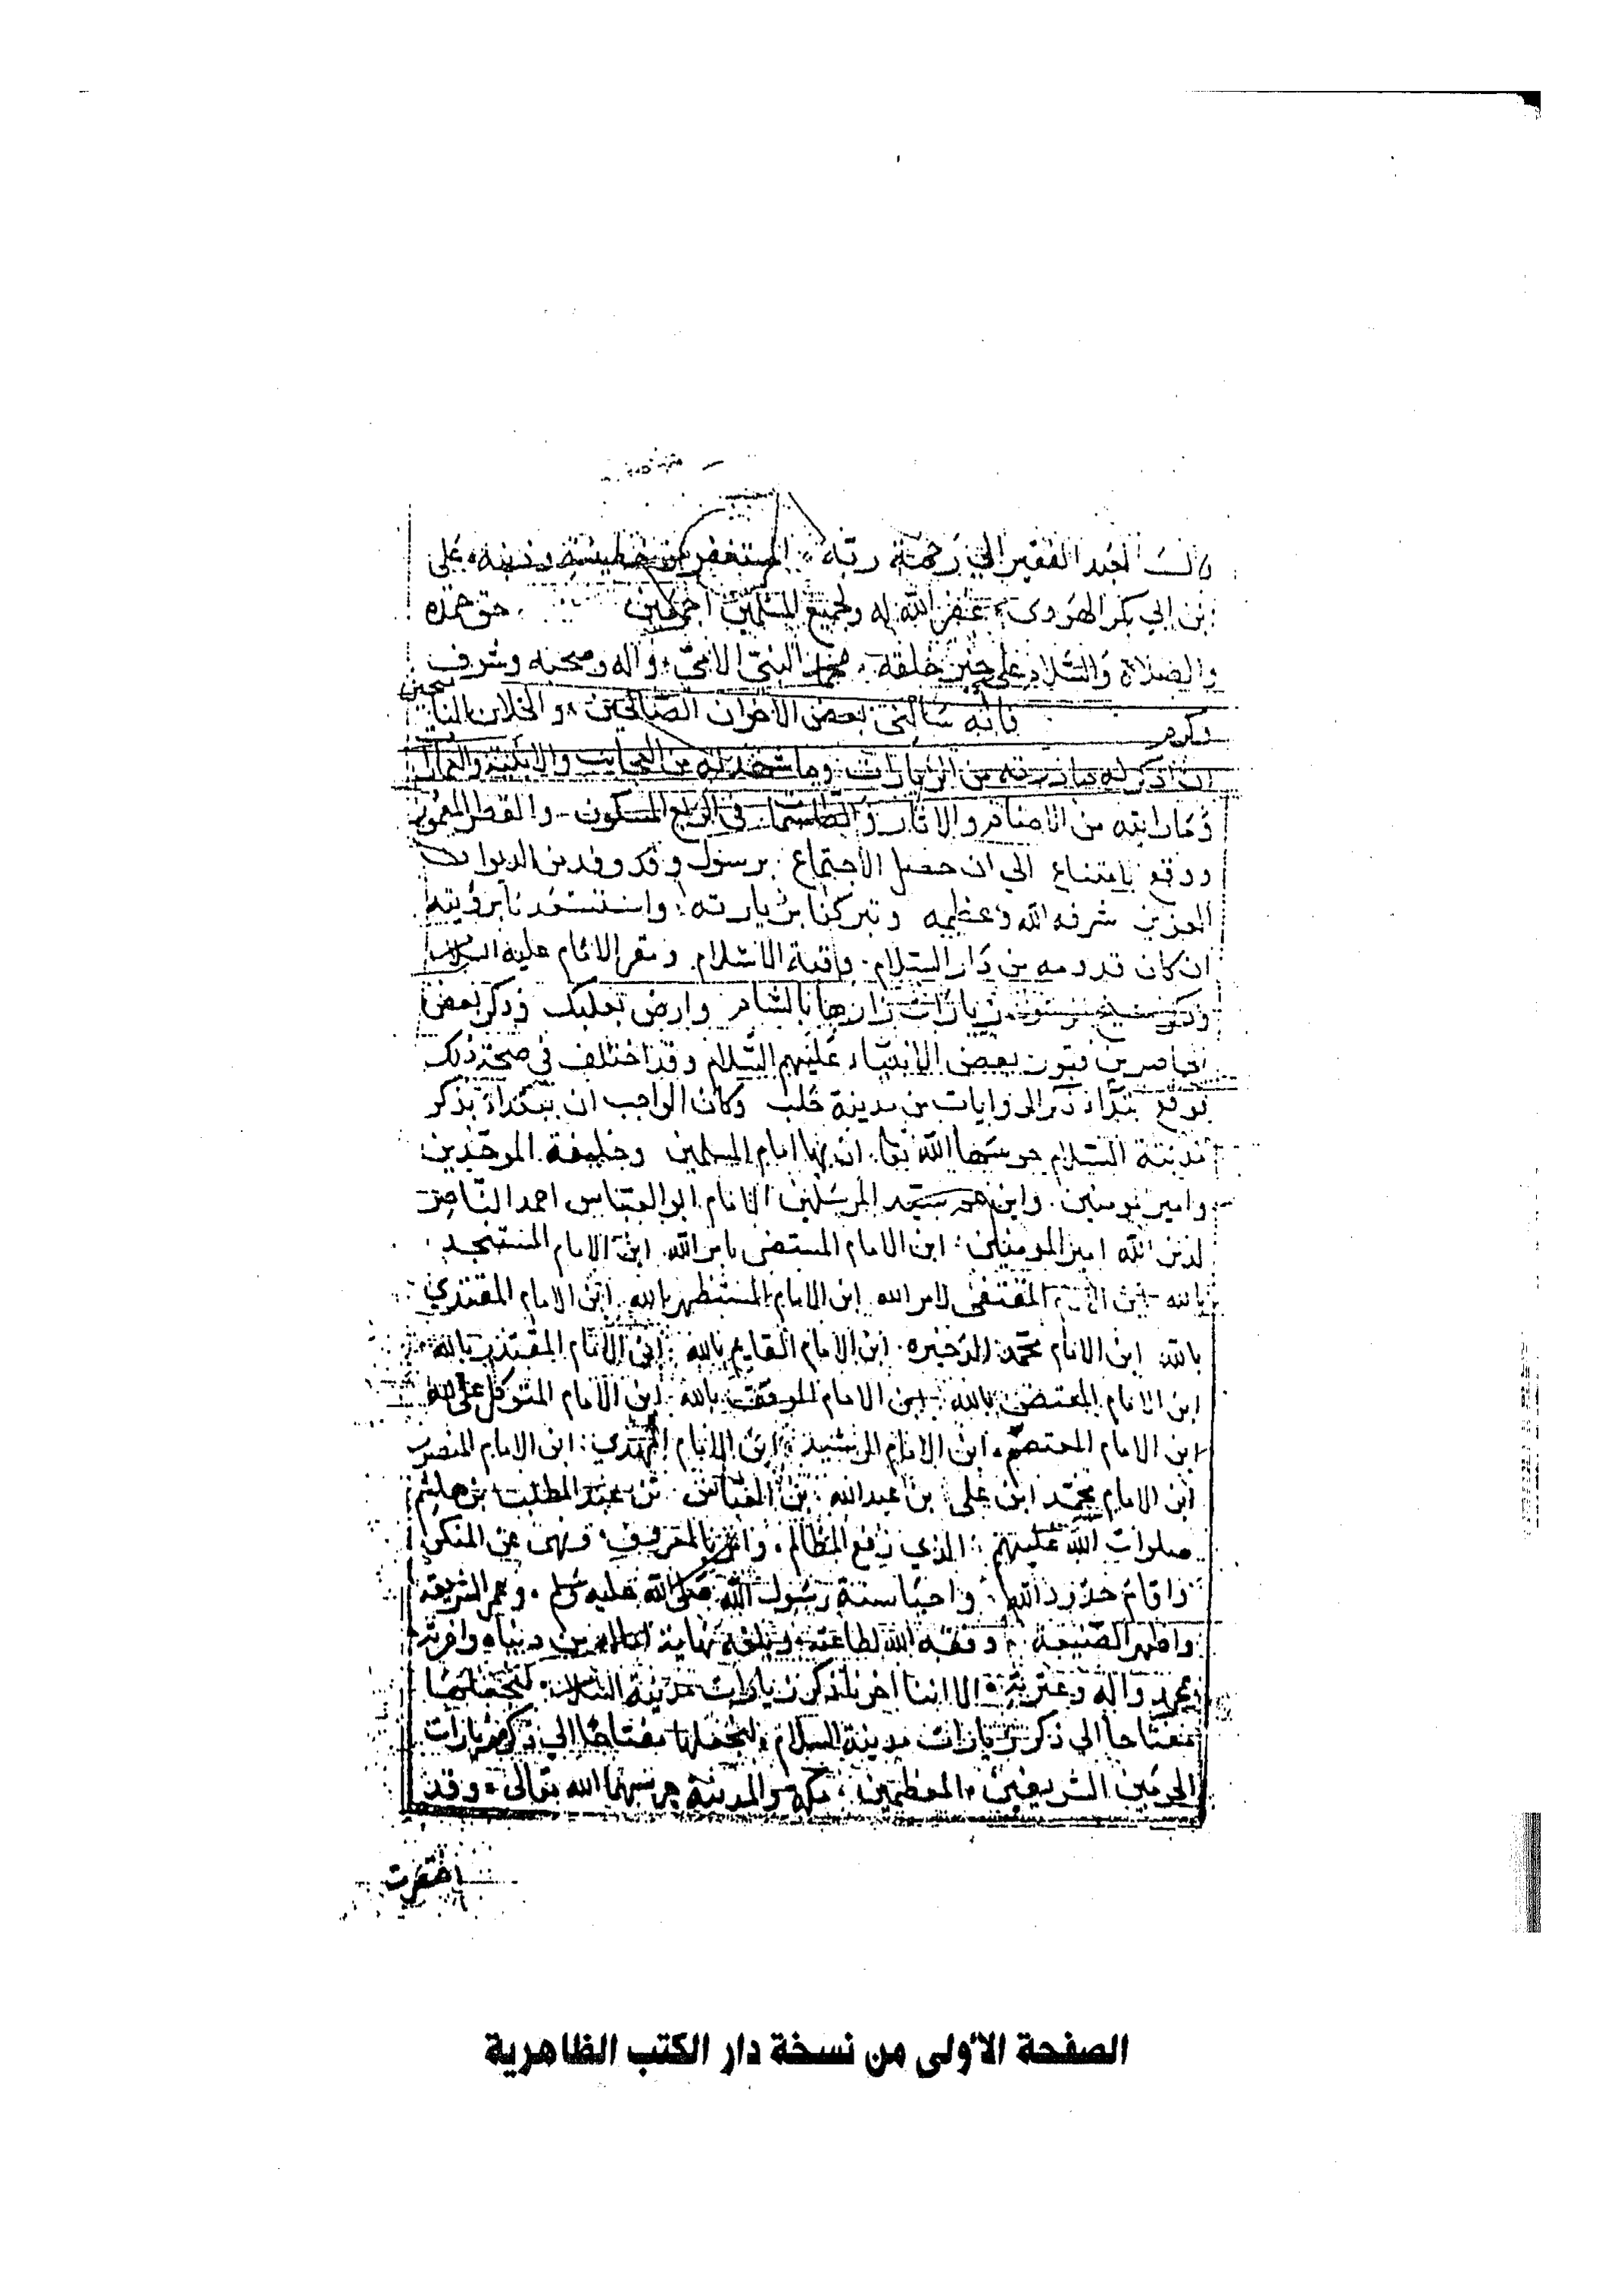 قال العبد الفقير الي رحمة ربه المستغفر من خطيئته وذنبه على
بن ابي بكر الهروى غفر الله له ولجميع المسلمين اجمعين حق حمده
والصلاة والسلام على خير خلقه محمد النبي الامي واله وصحبه وشرف
وكرم فانه سالني بعض الاخوان الصالحين والخلان الناصحين
ان اذكر له ما زرته من الزيارات وما شهدته من العجايب والابنية والعمارات
وما رايته من الاصنام والاثار والطلسمات في الربع المسكون والقطر المعمور
ووقع بامتناع الي ان حصل الاجتماع برسول وقد وفد من الديوان
العزيز شرفه الله وعظمه وتبركنا بزيارته واستسعدنا برؤيته
ان كان قدومه من دار السلام وقبة الاسلام ومقر الامام عليه السلام
وذكر زيارات زارها بالشام وارض بعلبك وذكر بعض
الحاضرين قبور بعض الانبياء عليهم السلام وقد اختلف في صحة ذلك
فوقع ابتداء ذكر الزيارات من مدينة حلب وكان الواجب ان نبتداء بذكر
مدينة السلام حرسها الله تعا ان بها امام المسلمين وخليفة الموحدين
وامير المومنين وابن عم سيد المرسلين الامام ابو العباس احمد الناصر
لدين الله امير المومنين ابن الامام المستضى بامر الله ابن الامام المستنجد
بالله ابن الامام المقتفى لامر الله ابن الامام المستظهر بالله ابن الامام المقتدي
بالله ابن الامام محمد الذخيره ابن الامام القايم بالله ابن الامام المقتدر بالله
ابن الامام المعتضد بالله ابن الامام الموفق بالله ابن الامام المتوكل على الله
ابن الامام المعتصم ابن الامام الرشيد ابن الامام المهدي ابن الامام المنصور
ابن الامام محمد ابن علي بن عبد الله بن العباس بن عبد المطلب بن هاشم
صلوات الله عليهم الذي رفع المظالم وامر بالمعروف ونهى عن المنكر
واقام حدود الله واحيا سنة رسول الله صلى الله عليه وسلم وعمر الشريعة
واظهر الصنيعة وفقه الله لطاعته وبلغه نهاية اماله من دنياه واخرته
بمحمد واله وعترته الا اننا اخرنا ذكر زيارات مدينة السلام لنجعلها
مفتاحا الي ذكر زيارات مدينة السلام لنجعلها مفتاحا الي ذكر زيارات
الحرمين الشريفين المعظمين مكة والمدينة حرسهما الله تعالى وقد
اختصرت
الصفحة الأولى من نسخة دار الكتب الظاهرية